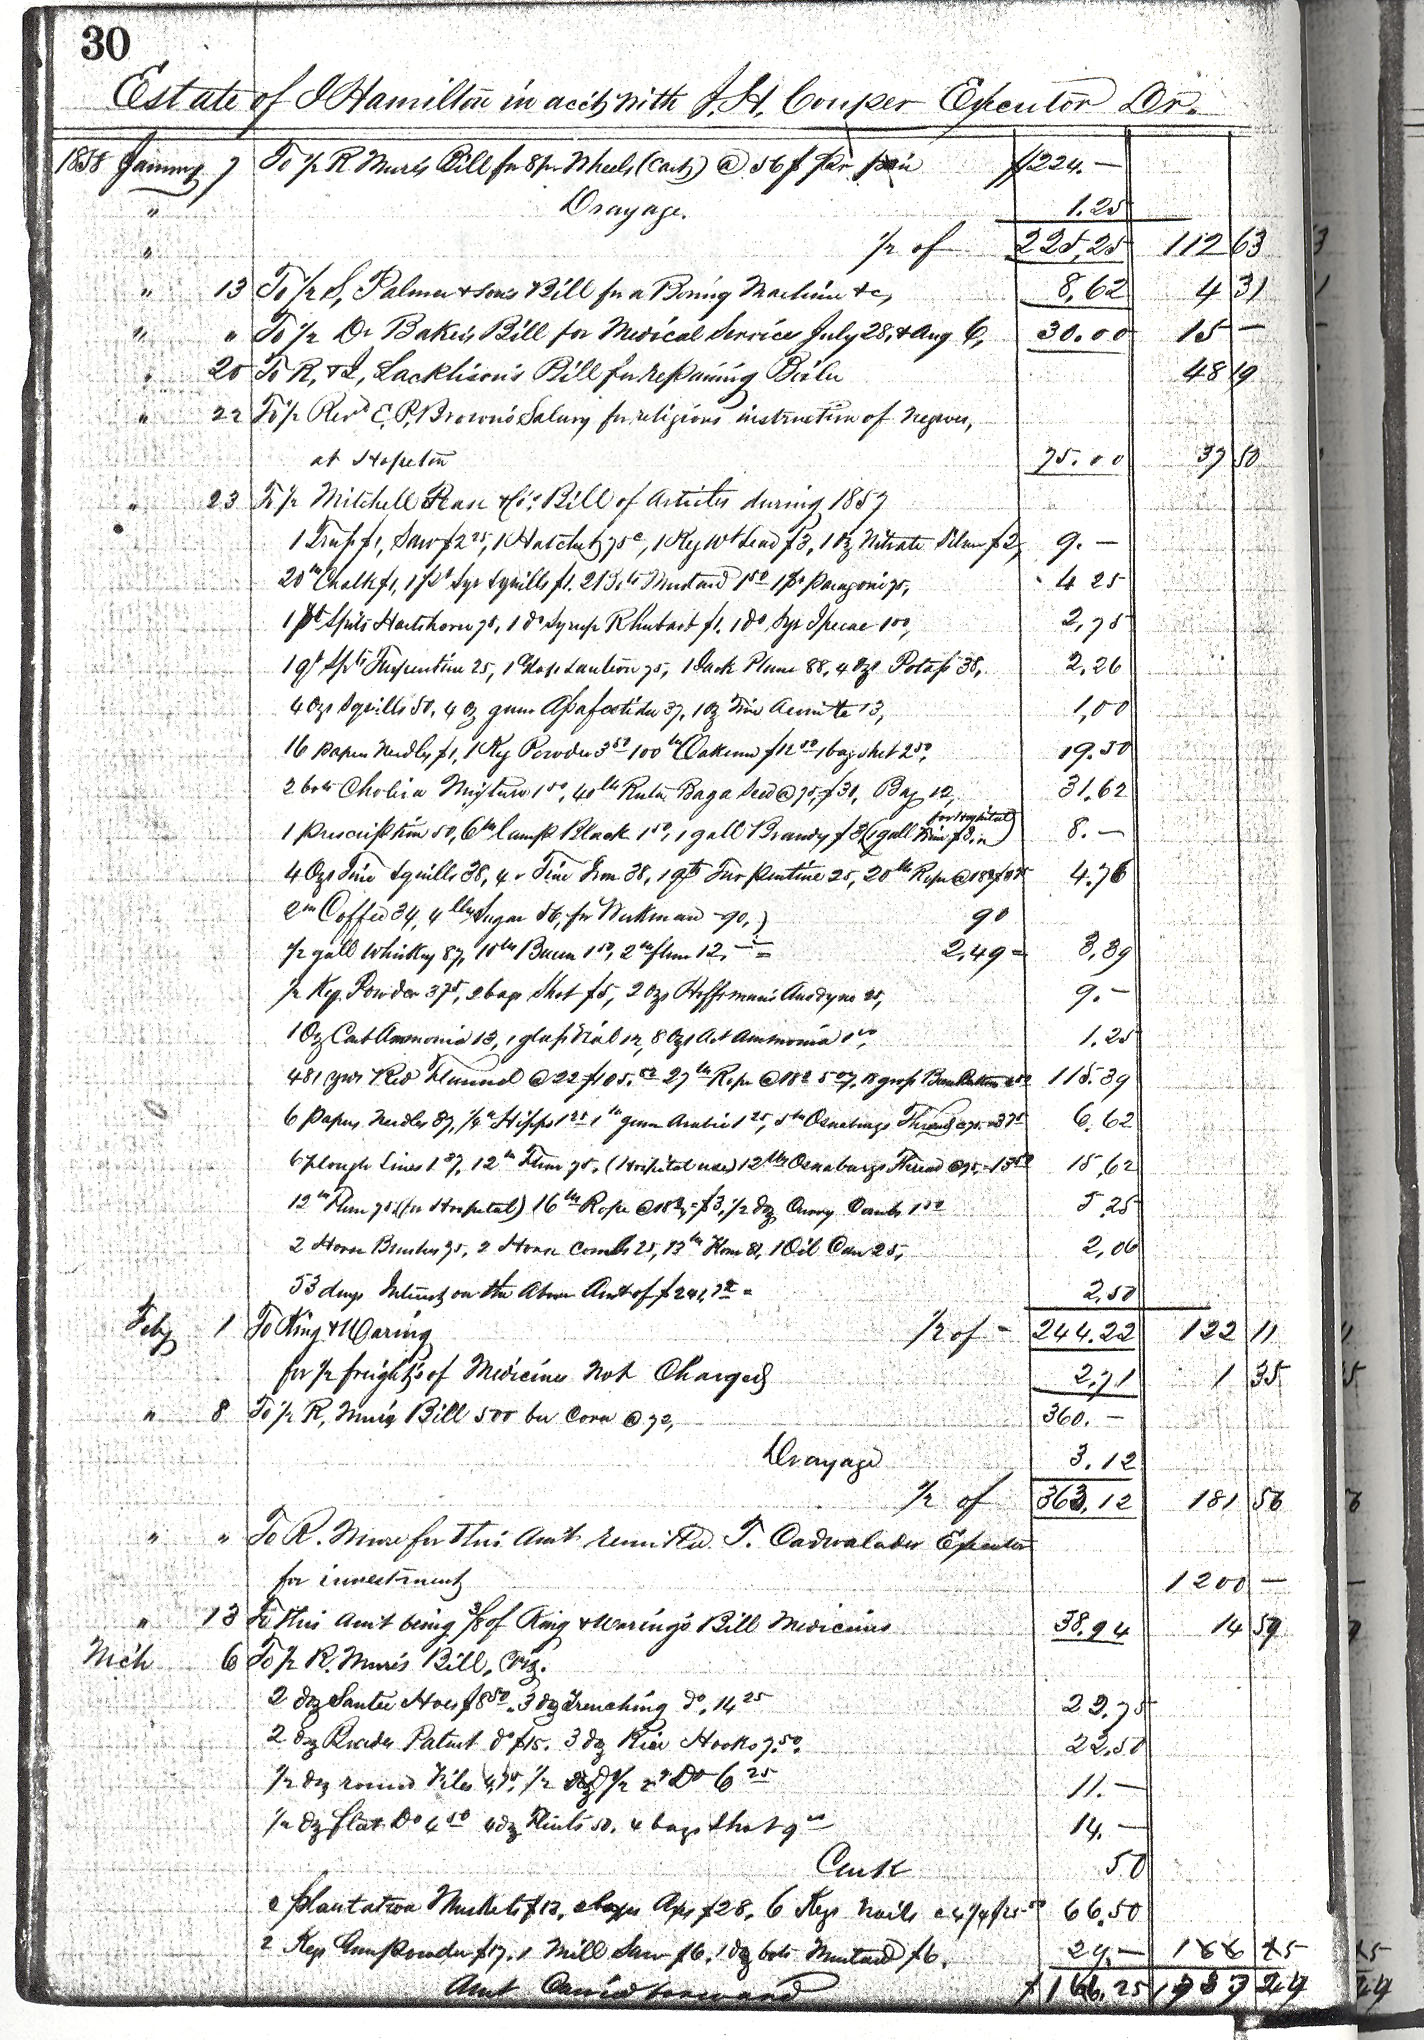 30
Estate of J Hamilton in acct with J. H. Couper Executor Dr.
1858 January 7 To 1/2 R Mure's Bill for 8 pr Wheels (Cart) @ 56$ per pair $224.—
" Drayage. 1.25
" 1/2 of 225,25 112 63
" 13 To 1/2 S, Palmer & sons Bill for a Boring Machine &c, 8,62 4 31
" " To 1/2 Dr Baker's Bill for Medical Services July 28, & Aug 6, 30.00 15 —
" 20 To R, & J, Lachlison's Bill for repairing Boiler 48 19
" 22 To 1/2 Revd E. P. Brown's Salary for religious instruction of negroes,
at Hopeton 75.00 37 50
" 23 To 1/2 Mitchell & Co. Bill of Articles during 1857
1 $1, Saw $2 25, 1 Hatchet 75c, 1 Keg Wt Lead $3, 1 Oz Nitrate Silver $2, 9.—
20 lb Chalk $1, 1 pt Syr Squills $1. 2 Mustard 1 50 1 pt Paragoric 75, 4 25
1 pt Spits Hartshorn 75, 1 do Syrup Rhubarb $1. 1 do Syr Ipecac 100, 2,75
1 qt Spts Turpentine 25, 1 Glass Lantern 75, 1 Jack Plane 88, 4 Ozs Potass 38, 2.26
4 Ozs Squills 50, 4 Oz gum Assafoetida 37, 1 Oz Tinc Aconite 13, 1,00
16 papers Needles $1, 1 Keg Powder 3 50 100 lb Oakum $12 50 1 bag shot 2 50, 19.50
2 bots Cholera Mixture 1 50, 40 lb Ruta Baga Seed @ 75, $30, Bag 12, 31.62
1 prescription 50, 6 lb Lamp Black 1 50, 1 gall Brandy $3 (1 gall $3, for Hospital) 8.—
4 Ozs Tinc Squills 38, 4 " Tinc Iron 38, 1 qt Turpentine 25, 20 lb Rope @ 18 3/4 $3 75 4.76
2 lb Coffee 34, 4 lbs Sugar 56, for Workman 90,) 90
1/2 gall Whiskey 87, 10 lb Bacon 1 50, 2 lb flour 12, 2,49 = 3,39
1/2 Keg Powder 3 75, 2 bags Shot $5, 2 Ozs Hoffman's Anodyne 25, 9.—
1 Oz Carb Ammonia 13, 1 glass Vial 12, 8 Ozs Act Ammonia 1 00, 1.25
481 yds Red Flannel @ 22 $105.82 27 lb Rope @ 18 3/4 5 07, 18 gross 4 50 115.39
6 papers Needles 37, 1/4 lb Hipps 1 25 1 lb gum Arabic 1 25, 5 lb Osnaburgs Thread @ 75 = 3 75 6.62
6 Plough Lines 1 37, 12 lb Flour 75, (Hospital use) 12 lbs Osnaburgs Thread @ 15,62
12 lb Flour 75, (for Hospital) 16 lb Rope @ 18 3/4 = $3, 1/2 dz Curry Combs 1 50 5.25
2 Horse Brushes 75, 2 Horse Combs 25, 13 lb 81, 1 Oil Can 25, 2,06
53 days Interest on the Above Amt of $241,72 = 2,50
Feby 1 To King & Waring 1/2 of — 244.22 122 11
for 1/2 freights of Medicines not Charged 2,71 1 35
" 8 To 1/2 R, Mure's Bill 500 bu Corn @ 72, 360.—
Drayage 3.12
1/2 of 363,12 181 56
" " To R. Mure for this Amt remitted T. Cadwalader Executor
for investment 1200 —
" 13 To this Amt being 3/8 of King & Waring's Bill Medicines 38.94 14 59
Mch 6 To 1/2 R. Mure's Bill, Viz.
2 dz Santee Hoes $8 50, 3 dz Trenching do, 14 25 22,75
2 dz Patent do $15. 3 dz Rice Hooks 7.50, 22,50
1/2 dz round Files 4,75, 1/2 Do 6 25 11.—
1/2 dz flat Do 4 50 4 dz Flints 50, 4 bags Shot 9 00 14.—
Cask 50
2 plantation Muskets $13, Axes $28, 6 Kegs Nails @ 4 1/4 $25 50 66,50
2 Kegs Gunpowder $17, 1 Mill Saw $6, 1 dz bots Mustard $6, 29,—
Amt Carried forward $166.25